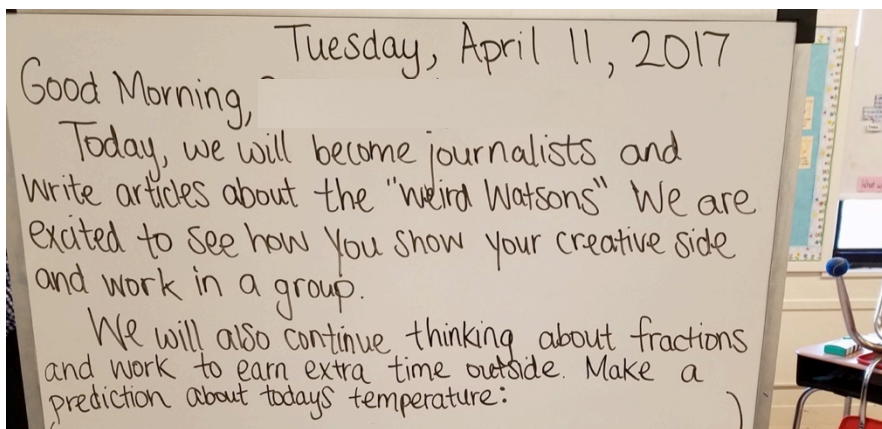 Tuesday, April 11, 2017
Good Morning,
Today, we will become journalists and
write articles about the "weird Watsons" We are
excited to see how you show your creative side
and work in a group.
We will also continue thinking about fractions
and work to earn extra time outside. Make a
prediction about todays temperature: